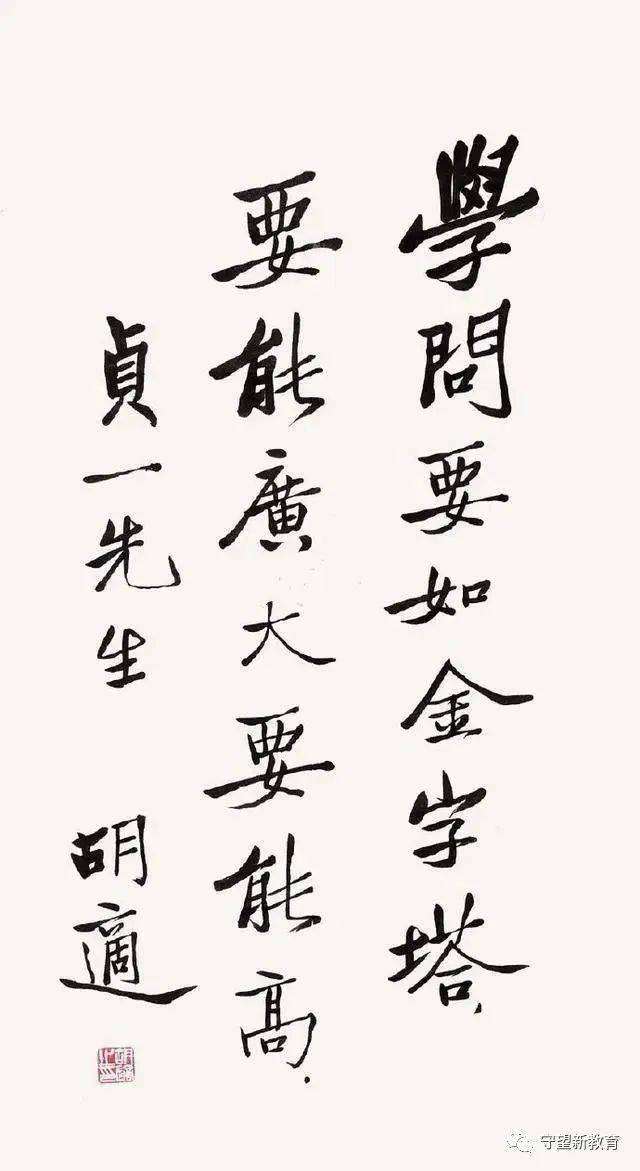 學問要如金字塔，
要能廣大要能高．
貞一先生
胡適
守望新教育